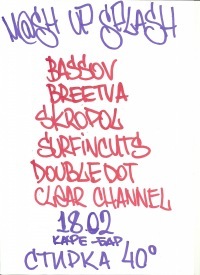 M@SH UP SPLASH
BASSOV
BREETVA
SKROPOL
SURFINCUTS
DOUBLEDOT
CLEAR CHANNEL
18.02
КАФЕ-БАР
СТИРКА 40°